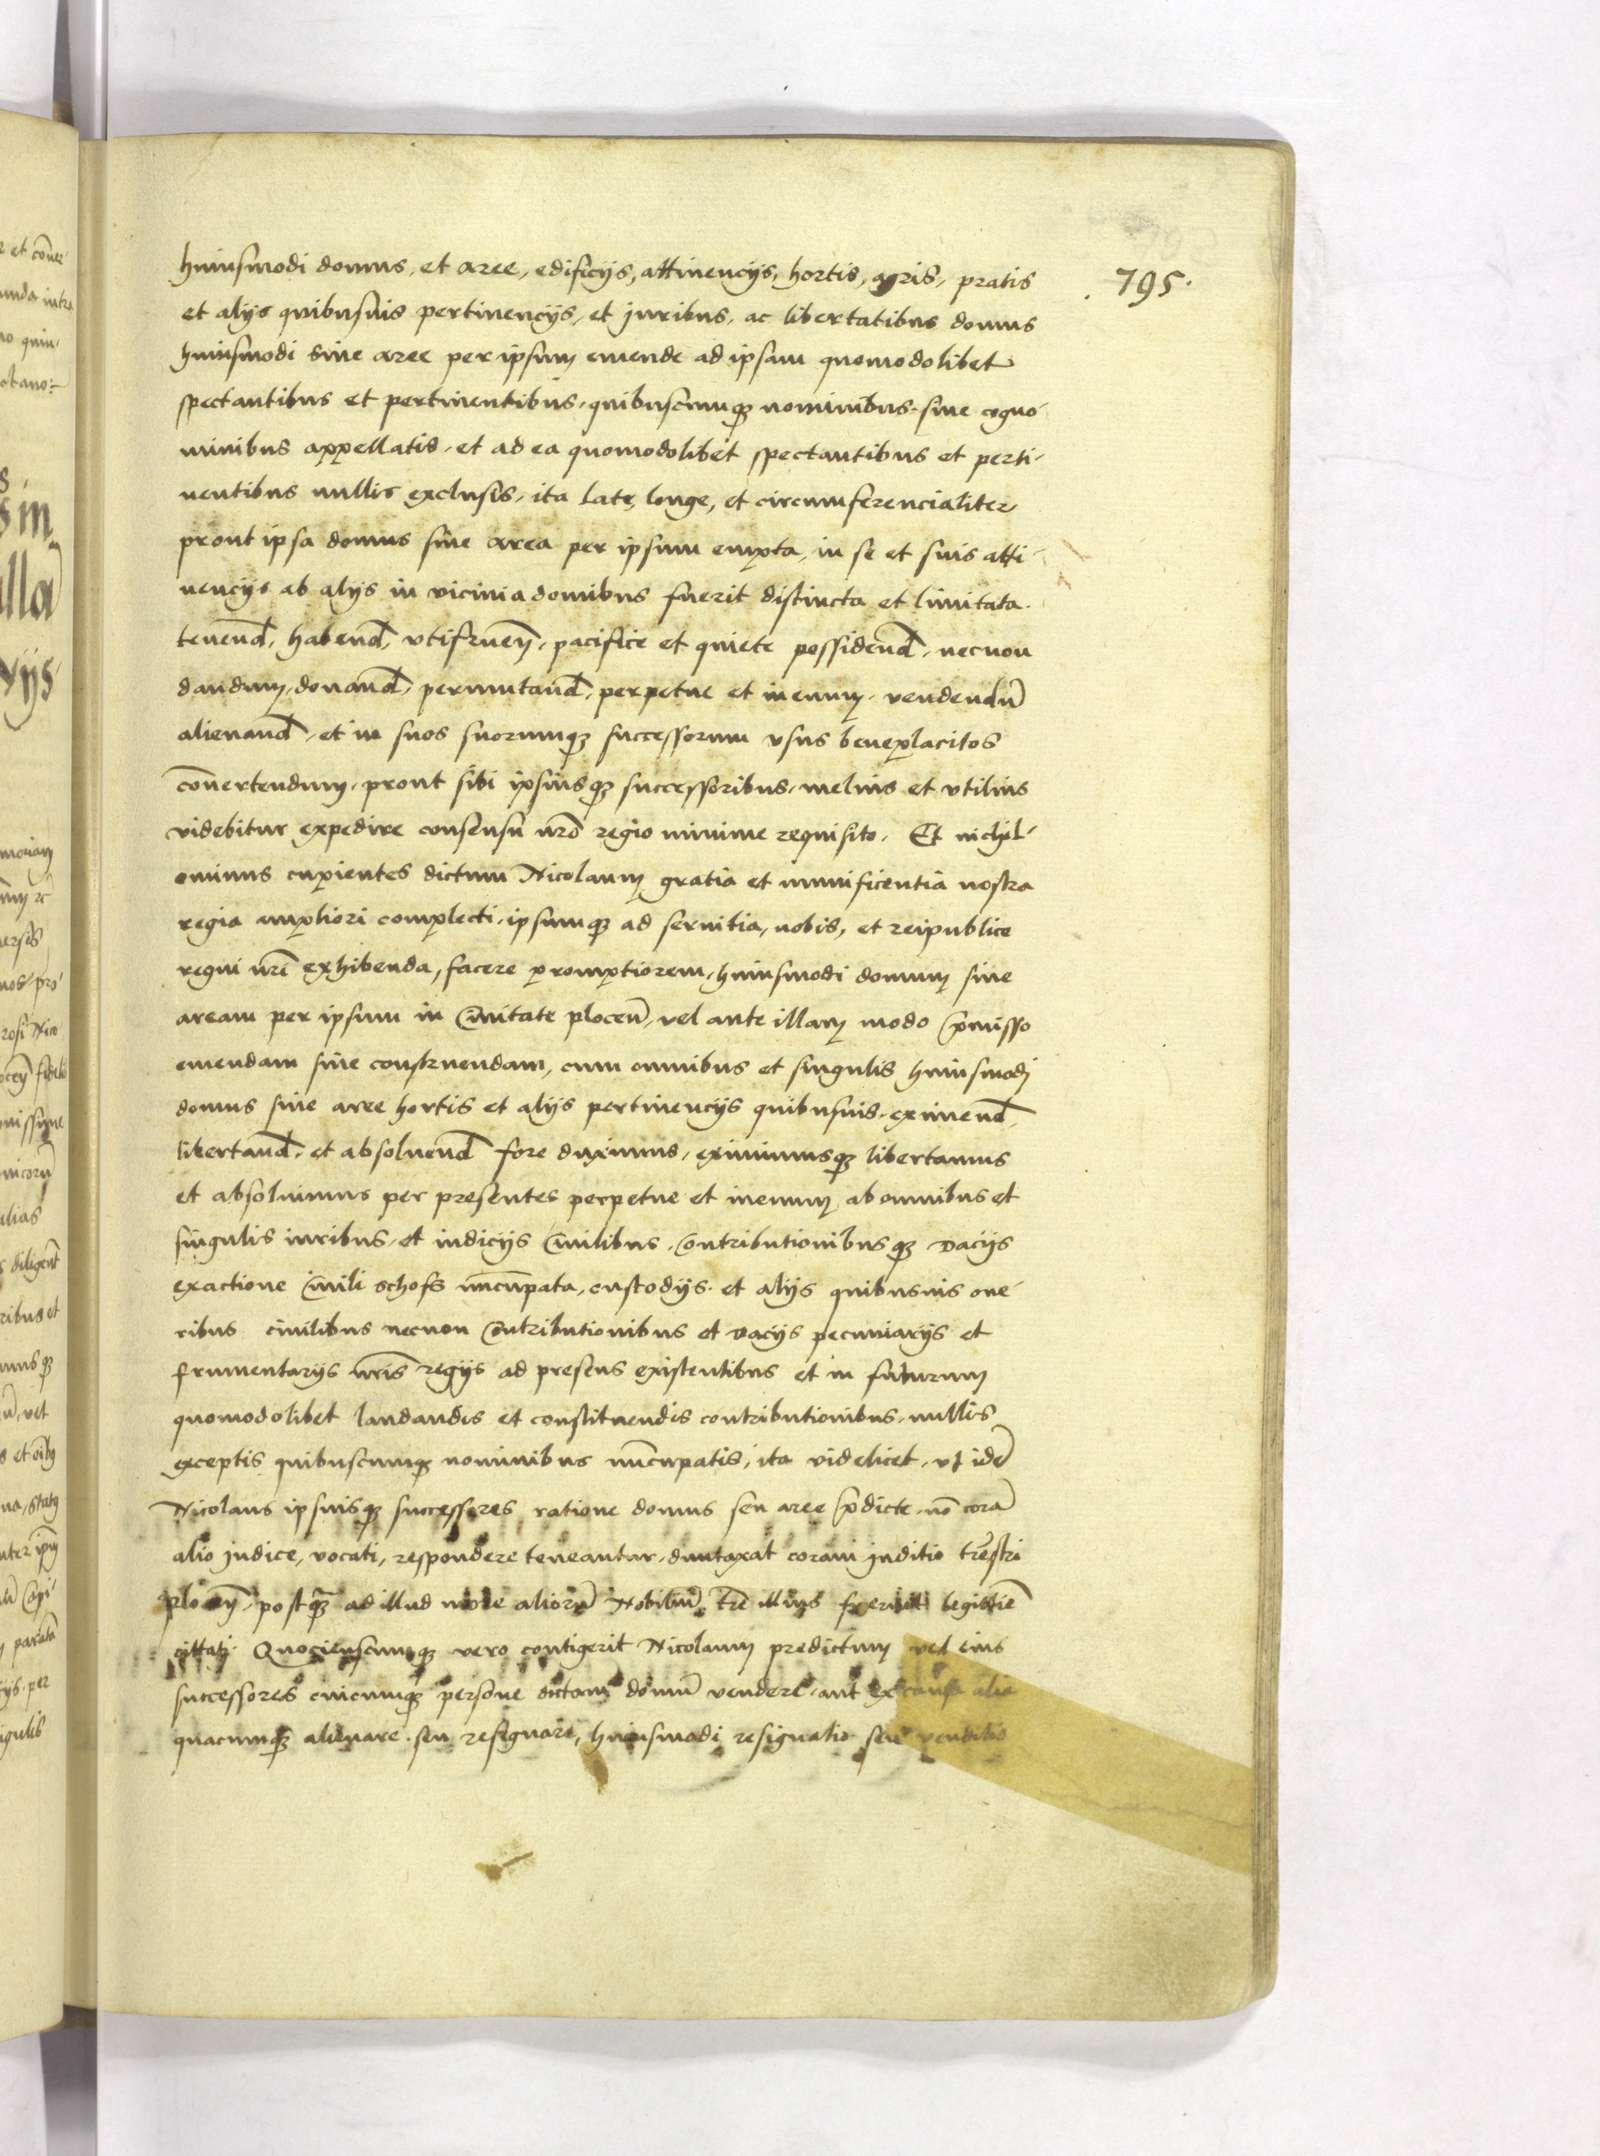 795.
huiusmodi domus, et aree, edificijs, attinencijs, hortis, agris, pratis
et alijs quibusuis pertinencijs, et juribus, ac libertatibus domus
huiusmodi siue aree per ipsum emende ad ipsam quomodolibet
spectantibus et pertinentibus, quibuscumqȝ nominibus siue cogno-
minibus appellatis, et ad ea quomodolibet spectantibus et perti-
nentibus nullis exclusis, ita late, longe, et circumferencialiter,
prout ipsa domus siue area per ipsum empta, in se et suis atti-
nencijs ab alijs in vicinia domibus fuerit distincta et limitata.
tenend, habend, vtifruen, pacifice et quiete possidend, necnon
dandum, donand, permutand, perpetue et in euum, vendendū
alienand, et in suos suorumqȝ successorum vsus beneplacitos
cōuertendum, prout sibi ipsiusqȝ successoribus, melius et vtilius
videbitur expedire consensu nrō regio minime requisito. Et nichil-
ominus cupientes dictum Nicolaum gratia et munificentia nostra
regia ampliori complecti, ipsumqȝ ad seruitia, nobis, et reipublice
regni nrī exhibenda, facere promptiorem, huiusmodi domum siue
aream per ipsum in Ciuitate plocen̄, vel ante illam modo p̄misso
emendam siue construendam, cum omnibus et singulis huiusmodi
domus siue aree hortis et alijs pertinencijs quibusuis, eximend,
libertand, et absoluend fore duximus, eximimusqȝ libertamus
et absoluimus per presentes perpetue et in euum, ab omnibus et
singulis iuribus, et iudicijs Ciuilibus, Contributionibusqȝ dacijs
exactione Ciuili schoss nūcupata, custodijs, et alijs quibusuis one-
ribus ciuilibus necnon Cōntributionibus et dacijs pecuniarijs et
frumentarijs nr̄is regijs ad presens existentibus et in futurum
quomodolibet laudandis et constituendis contributionibus, nullis
exceptis quibuscumqȝ nominibus nūcupatis, ita videlicet, vt idē
Nicolaus ipsiusqȝ successores ratione domus seu aree p̄dicte, nō corā
alio judice, vocati, respondere teneantur, duntaxat coram juditio tr̄estri
plocen̄, postqȝ ad illud more aliorū Nobiliū tr̄e illius fuerint legittie
cittati. Quocienscumqȝ vero contigerit Nicolaum predictum vel eius
successores cuicumqȝ persone dictam domū vendere, aut ex causa alia
quacumqȝ alienare, seu resignare, huiusmodi resignatio seu venditio